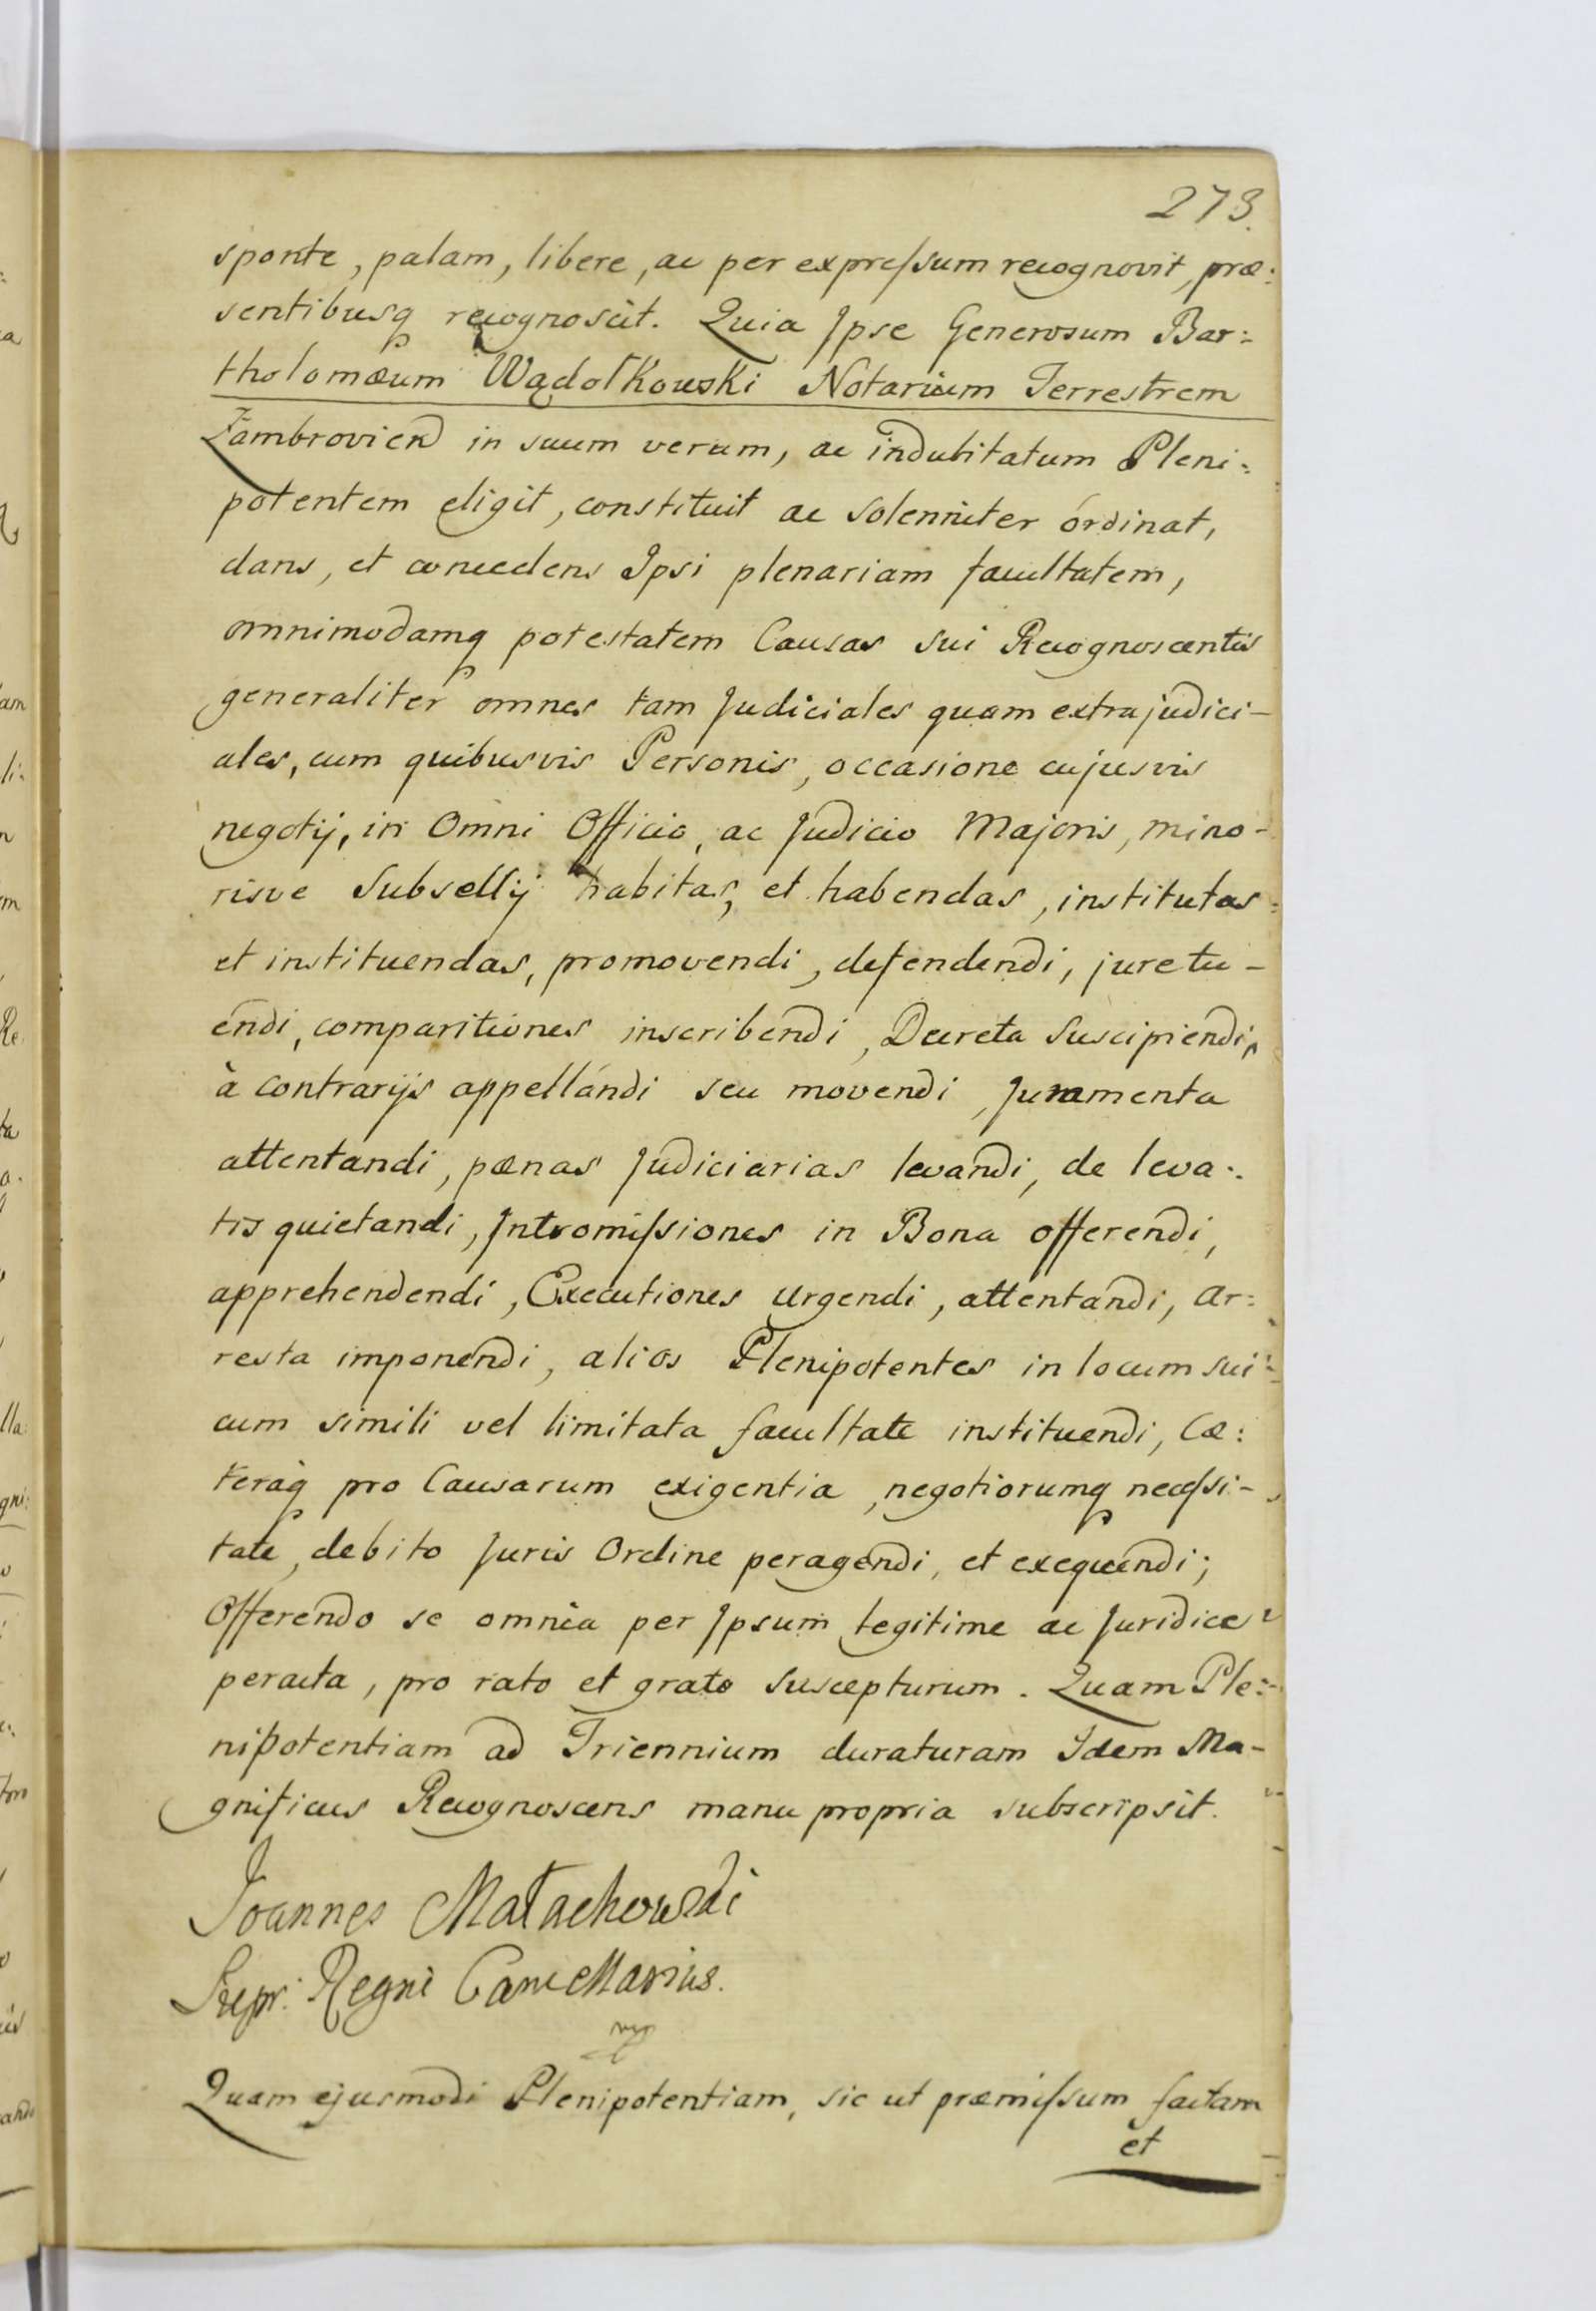 273.
sponte, palam, libere, ac per expreſsum recognovit, præ:
sentibusq recognoscit. Quia Ipse Generosum Bar:
tholomæum Wądołkowski Notarium Terrestrem
Zambrovien in suum verum, ac indubitatum Pleni:
potentem eligit, constituit ac solenniter órdinat,
dans, et concedens Ipsi plenariam facultatem,
omnimodamq potestatem Causas sui Recognoscentis
generaliter omnes tam Judiciales quam extrajudici-
ales, cum quibusvis Personis, occasione cujusvis
negotij, in Omni Officio, ac Judicio Majoris, mino-
risve Subsellij habitas, et habendas, institutas
et instituendas, promovendi, defendendi, jure tu-
endi, comparitiones inscribendi, Decreta Suscipiendi,
à contrarijs appellándi seu movendi, Juramenta
attentandi, pænas Judiciarias levandi, de leva:
tis quietandi, Intromiſsiones in Bona offerendi,
apprehendendi, Executiones urgendi, attentandi, Ar:
resta imponendi, alios Plenipotentes in locum sui
cum simili vel limitata facultate instituendi, Cæ:
teraq pro Causarum exigentia, negotiorumq neceſsi-
tate, debito Juris Ordine peragendi, et exequendi;
Offerendo se omnia per Ipsum legitime ac Juridice
peracta, pro rato et grato suscepturum. Quam Ple:
nipotentiam ad Triennium duraturam Idem Ma-
gnificus Recognoscens manu propria subscripsit.
Joannes Małachowski
Supr: Regni Cancellarius.
mp
Quam ejusmodi Plenipotentiam, sic ut præmiſsum factam
et